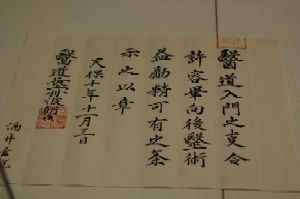 醫道入門之支合
許容畢向後醫術
益勵精可有之条
示之以章
天保十年十一月三日
醫道
酒井